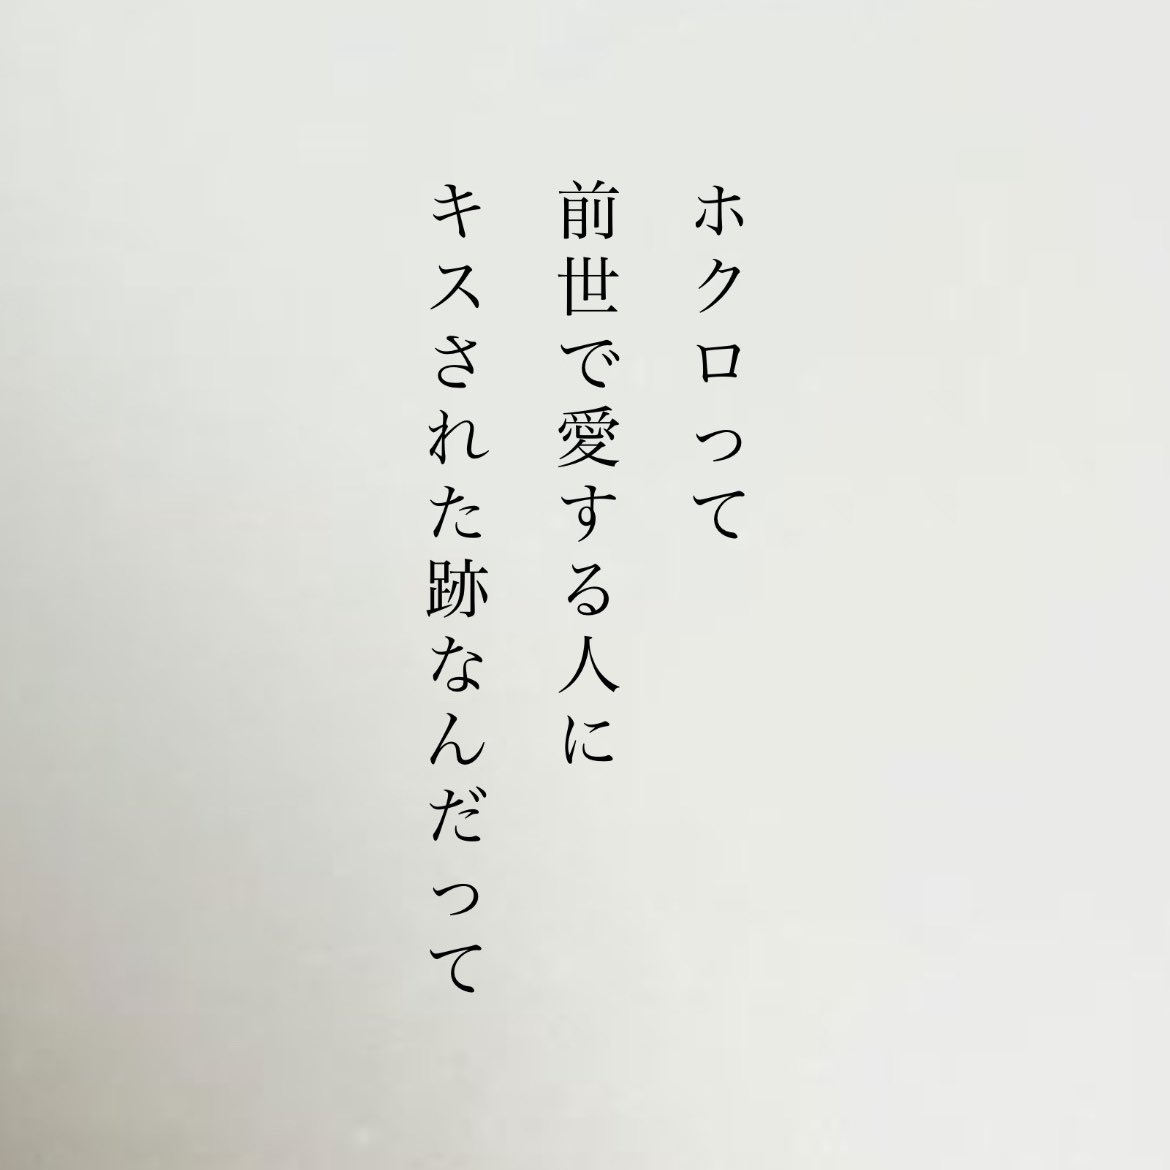 ホクロって
前世で愛する人に
キスされた跡なんだって